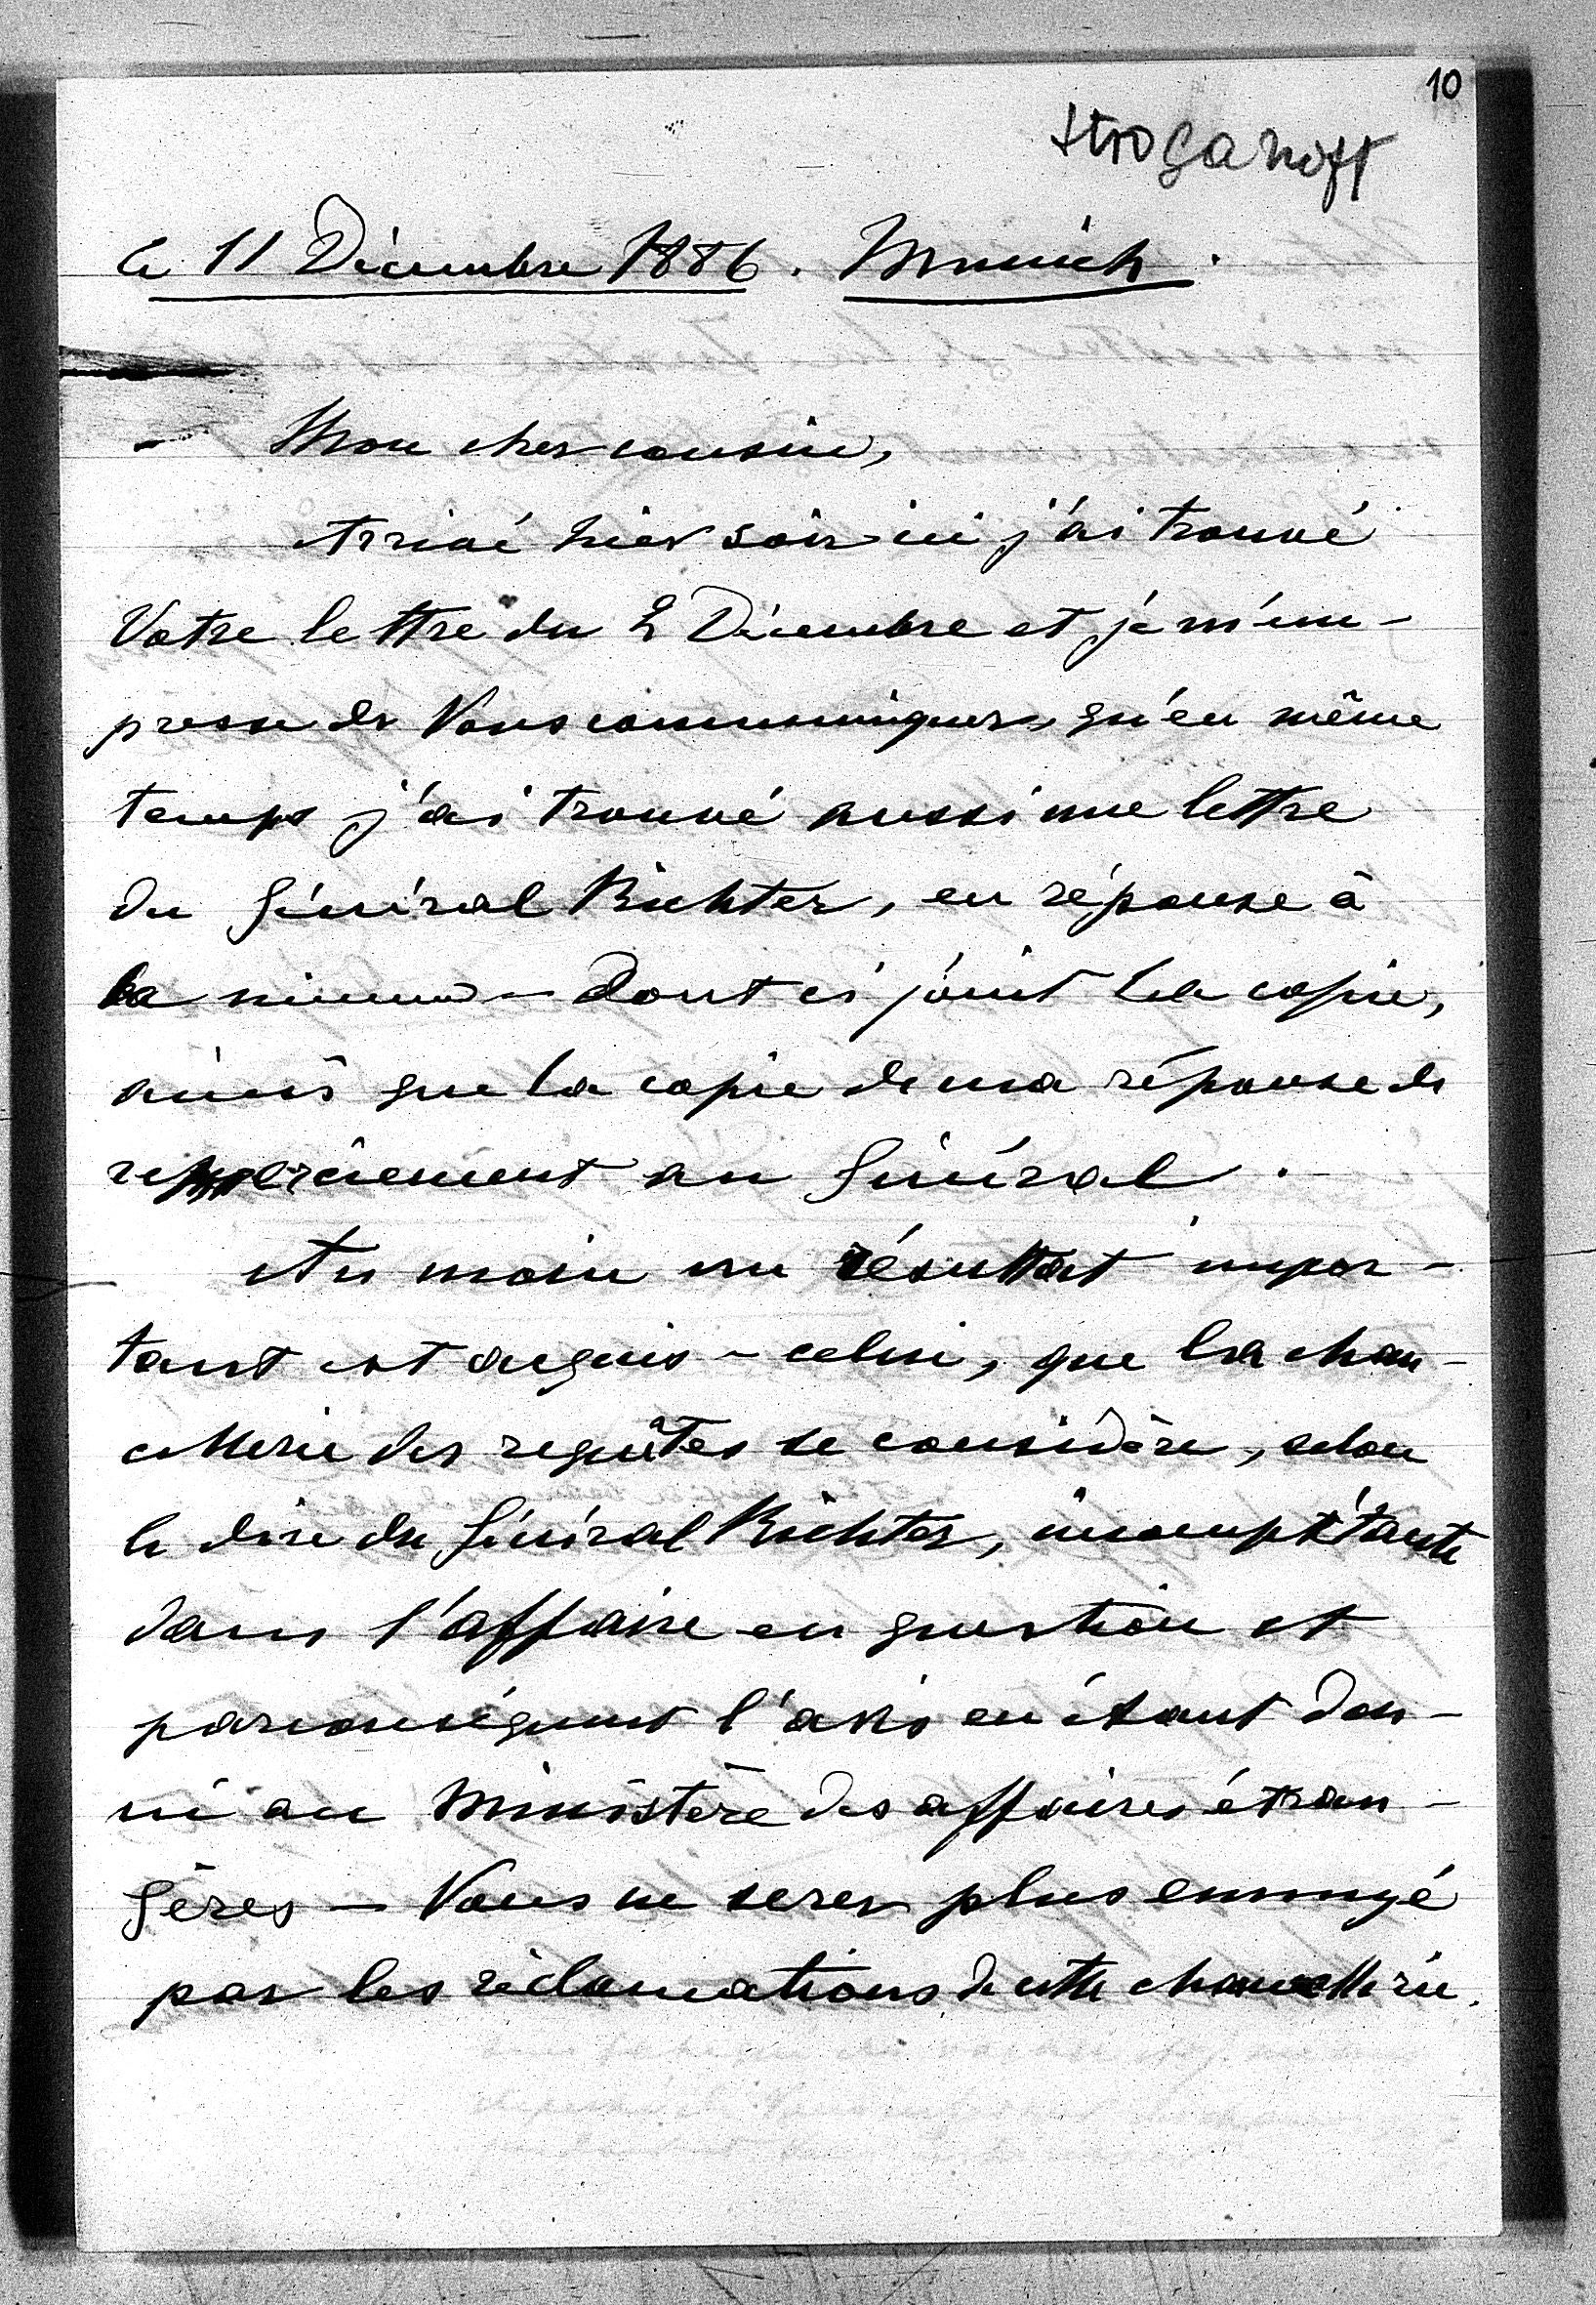 10
Stroganoff
Ce 11 Décembre 1886. Munich.
Mon cher cousin,
Arrivé hier soir ici j'ai trouvé
Votre lettre du 2 Décembre et je m'em-
presse de Vous communiquer, qu'en même
temps j'ai trouvé aussi une lettre
du Général Richter, en réponse à
la mienne – dont ci joint la copie,
ainsi que la copie de ma réponse de
remerciement au Général.
Au moin un résultat impor-
tant est acquis – celui, que la chan-
cellerie des requêtes se considère, selon
le dire du Général Richter, incompétante
dans l'affaire en question et
par conséquent l'avis en étant don-
né au Ministère des affaires étran-
gères – Vous ne serez plus ennuyé
par les réclamations de cette chancellerie.